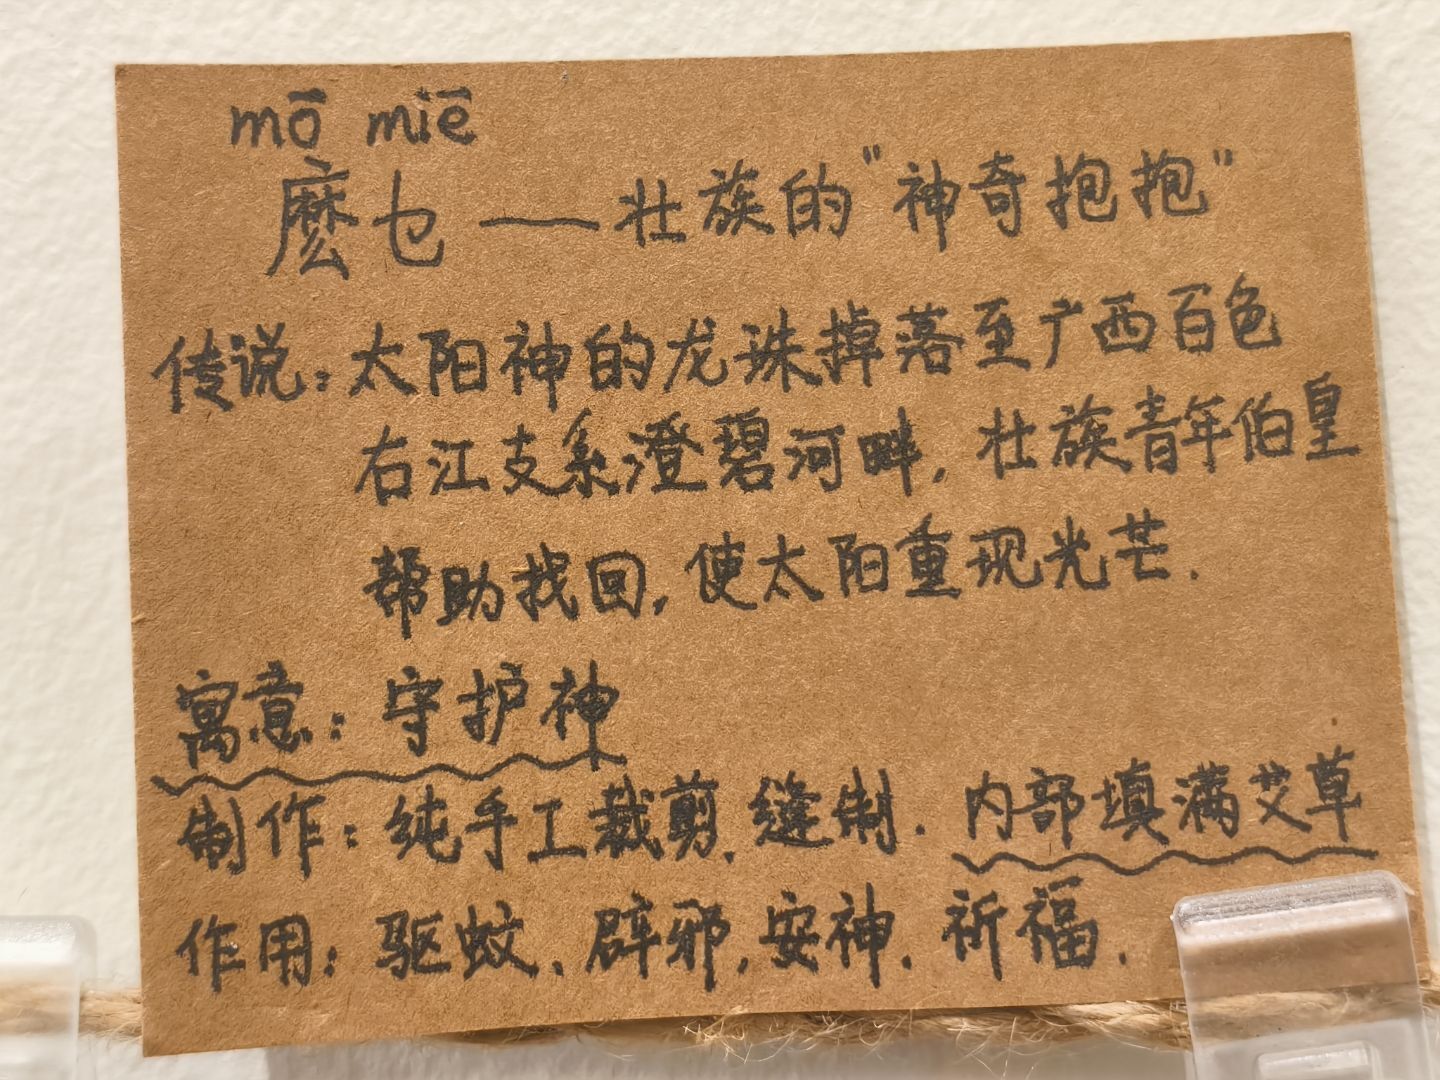 mō miē
麽乜——壮族的"神奇抱抱"
传说:太阳神的龙珠掉落至广西百色
右江支系澄碧河畔,壮族青年伯皇
帮助找回,使太阳重现光芒.
寓意:守护神
制作:纯手工裁剪、缝制.内部填满艾草
作用:驱蚊、辟邪,安神.祈福.